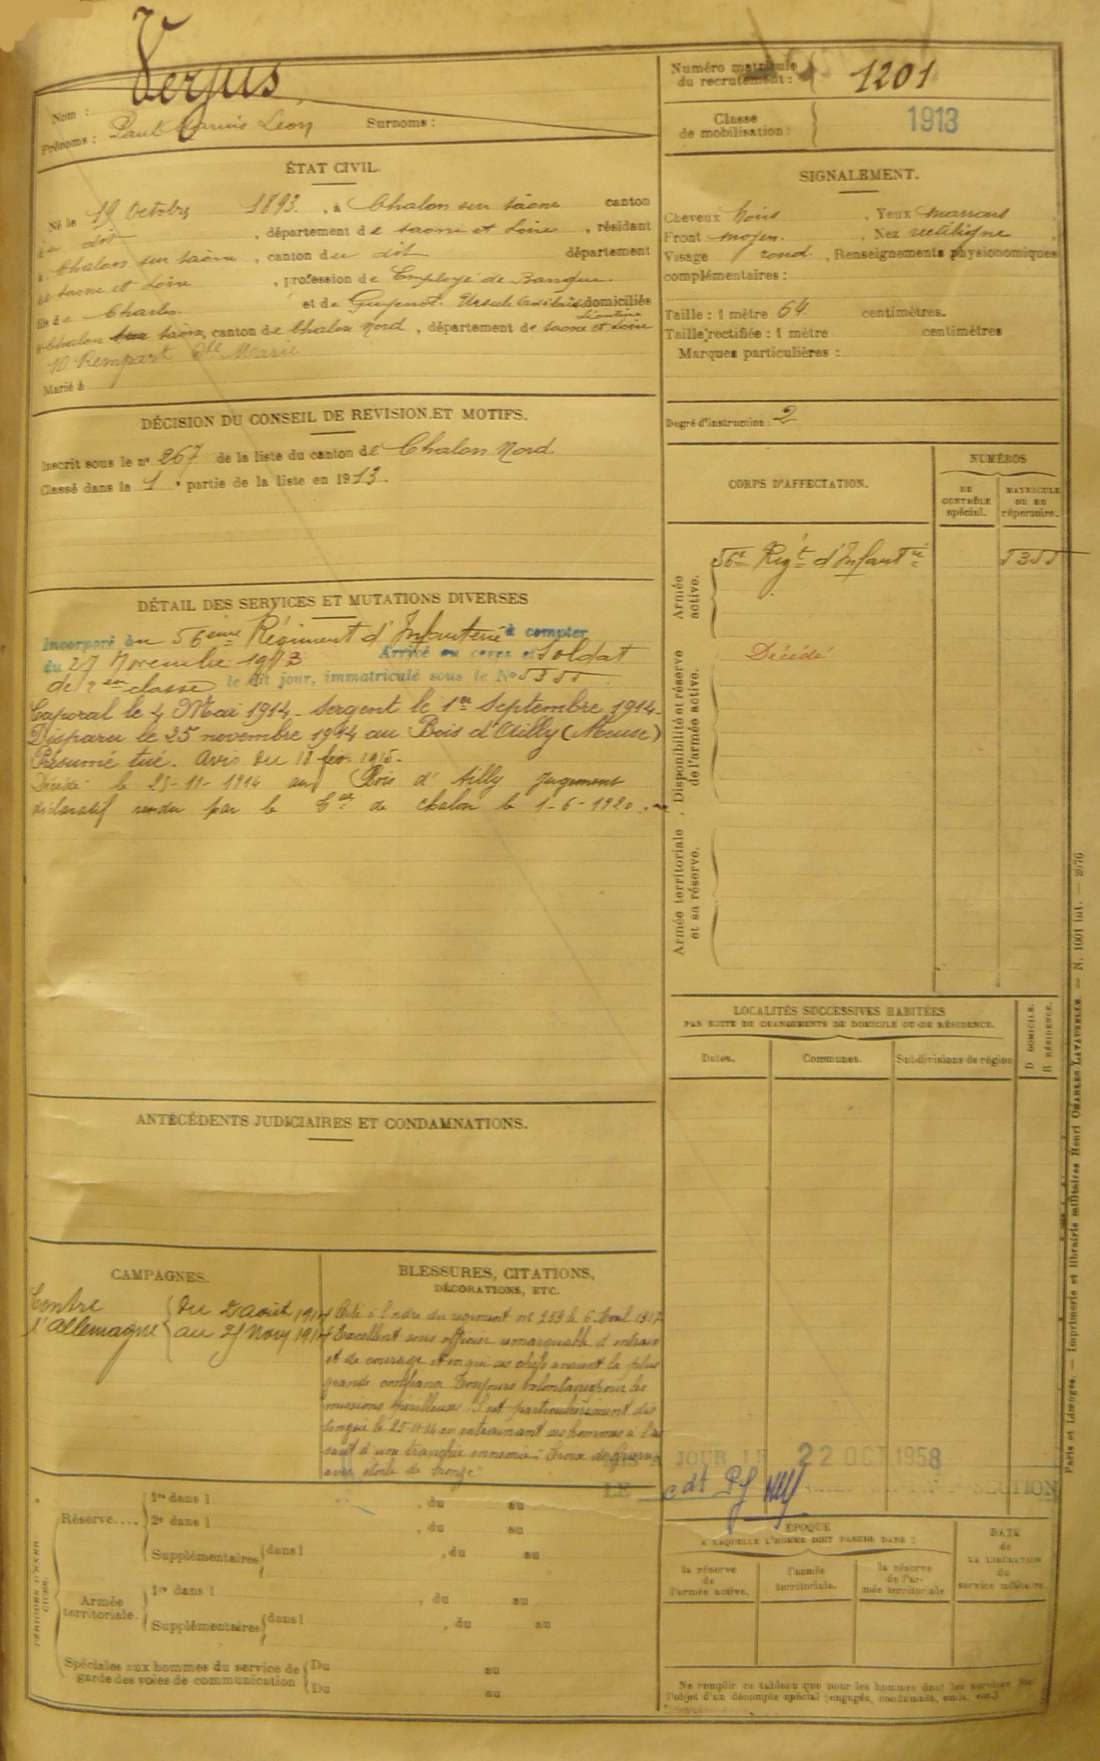 Nom : Verjus
Prénoms : Paul Marius Léon Surnoms :
Numéro matricule
du recrutement : 1201
Classe
de mobilisation : 1913
ÉTAT CIVIL.
Né le 19 Octobre 1893, à Chalon sur Saône canton
du dit, département de Saône et Loire, résidant
à Chalon sur Saône, canton du dit département
de Saône et Loire, profession de Employé de Banque
fils de Charles et de Guyenot. Ursule domiciliés
à Chalon sur Saône, canton de Chalon Nord, département de Saône et Loire
10 Rempart Ste Marie
Marié à
SIGNALEMENT.
Cheveux Noirs, Yeux marrons,
Front moyen, Nez rectiligne,
Visage rond, Renseignements physionomiques
complémentaires :
Taille : 1 mètre 64 centimètres.
Taille rectifiée : 1 mètre centimètres
Marques particulières :
Degré d'instruction : 2
DÉCISION DU CONSEIL DE REVISION ET MOTIFS.
Inscrit sous le n° 267 de la liste du canton de Chalon Nord
Classé dans la 1e partie de la liste en 1913.
DÉTAIL DES SERVICES ET MUTATIONS DIVERSES
Incorporé au 56ème Régiment d'Infanterie à compter
du 27 Novembre 1913 Arrivé au corps et Soldat
de 2ème classe le dit jour, immatriculé sous le N° 5355.
Caporal le 4 Mai 1914 - Sergent le 1er Septembre 1914 -
Disparu le 25 novembre 1914 au Bois d'Ailly (Meuse)
Présumé tué. Avis du 18 fév. 1915.
Décédé le 25-11-1914 au Bois d'Ailly Jugement
déclaratif rendu par le de Chalon le 1-6-1920.
CORPS D'AFFECTATION.
NUMÉROS
DU
CONTRÔLE
spécial.
MATRICULE
OU DU
répertoire.
Armée
active.
56e Régt d'Infantie
5355
Disponibilité et réserve
de l'armée active.
Décédé
Armée territoriale
et sa réserve.
LOCALITÉS SUCCESSIVES HABITÉES
PAR SUITE DE CHANGEMENTS DE DOMICILE OU DE RÉSIDENCE.
D DOMICILE.
R RÉSIDENCE.
Dates.
Communes.
Subdivisions de région
ANTÉCÉDENTS JUDICIAIRES ET CONDAMNATIONS.
CAMPAGNES.
Contre
l'Allemagne
du 2 août 1914
au 25 Nov 1914
BLESSURES, CITATIONS,
DÉCORATIONS, ETC.
Cité à l'ordre du régiment n° 259 le 6 1917
Excellent sous officier remarquable d'entrain
et de courage et en qui ses chefs avaient la plus
grande confiance. Toujours volontaire pour les
missions périlleuses. S'est particulièrement dis
tingué le 25-11-14 en entrainant ses hommes à l'as
saut d'une tranchée ennemie. Croix de Guerre
avec étoile de bronze
JOUR LE 22 OCT 1958
LE SECTION
PÉRIODES D'EXERCICES.
Réserve....
1re dans l , du au
2e dans l , du au
Supplémentaires dans l , du au
Armée
territoriale.
1re dans l , du au
Supplémentaires dans l , du au
Spéciales aux hommes du service de
garde des voies de communication
Du au
Du au
ÉPOQUE
A LAQUELLE L'HOMME DOIT PASSER DANS :
la réserve
de
l'armée active.
l'armée
territoriale.
la réserve
de l'ar-
mée territoriale
DATE
de
LA LIBÉRATION
du
service militaire.
Ne remplir ce tableau que pour les hommes dont les services font
l'objet d'un décompte spécial (engagés, condamnés, omis, etc.)
Paris et Limoges. — Imprimerie et librairie militaires Henri CHARLES-LAVAUZELLE. — N. 1001 int. —